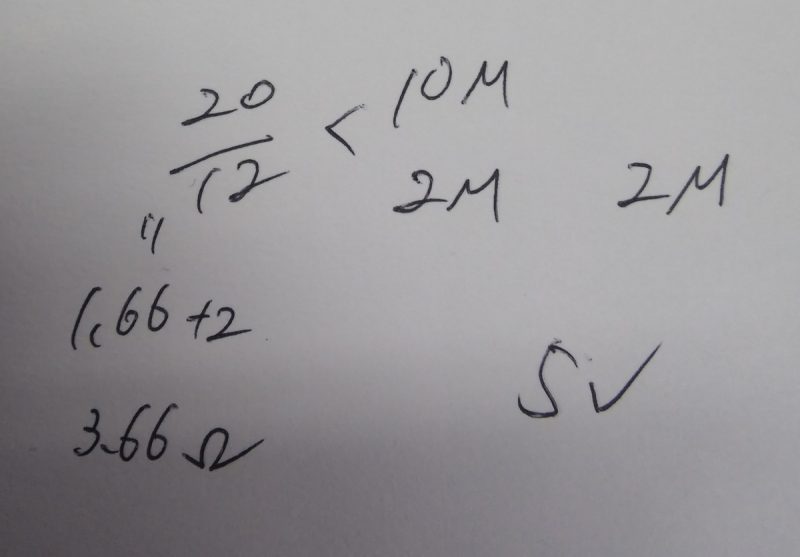 20/12 < 10M
2M 2M
"
1.66 + 2
5V
3.66 Ω